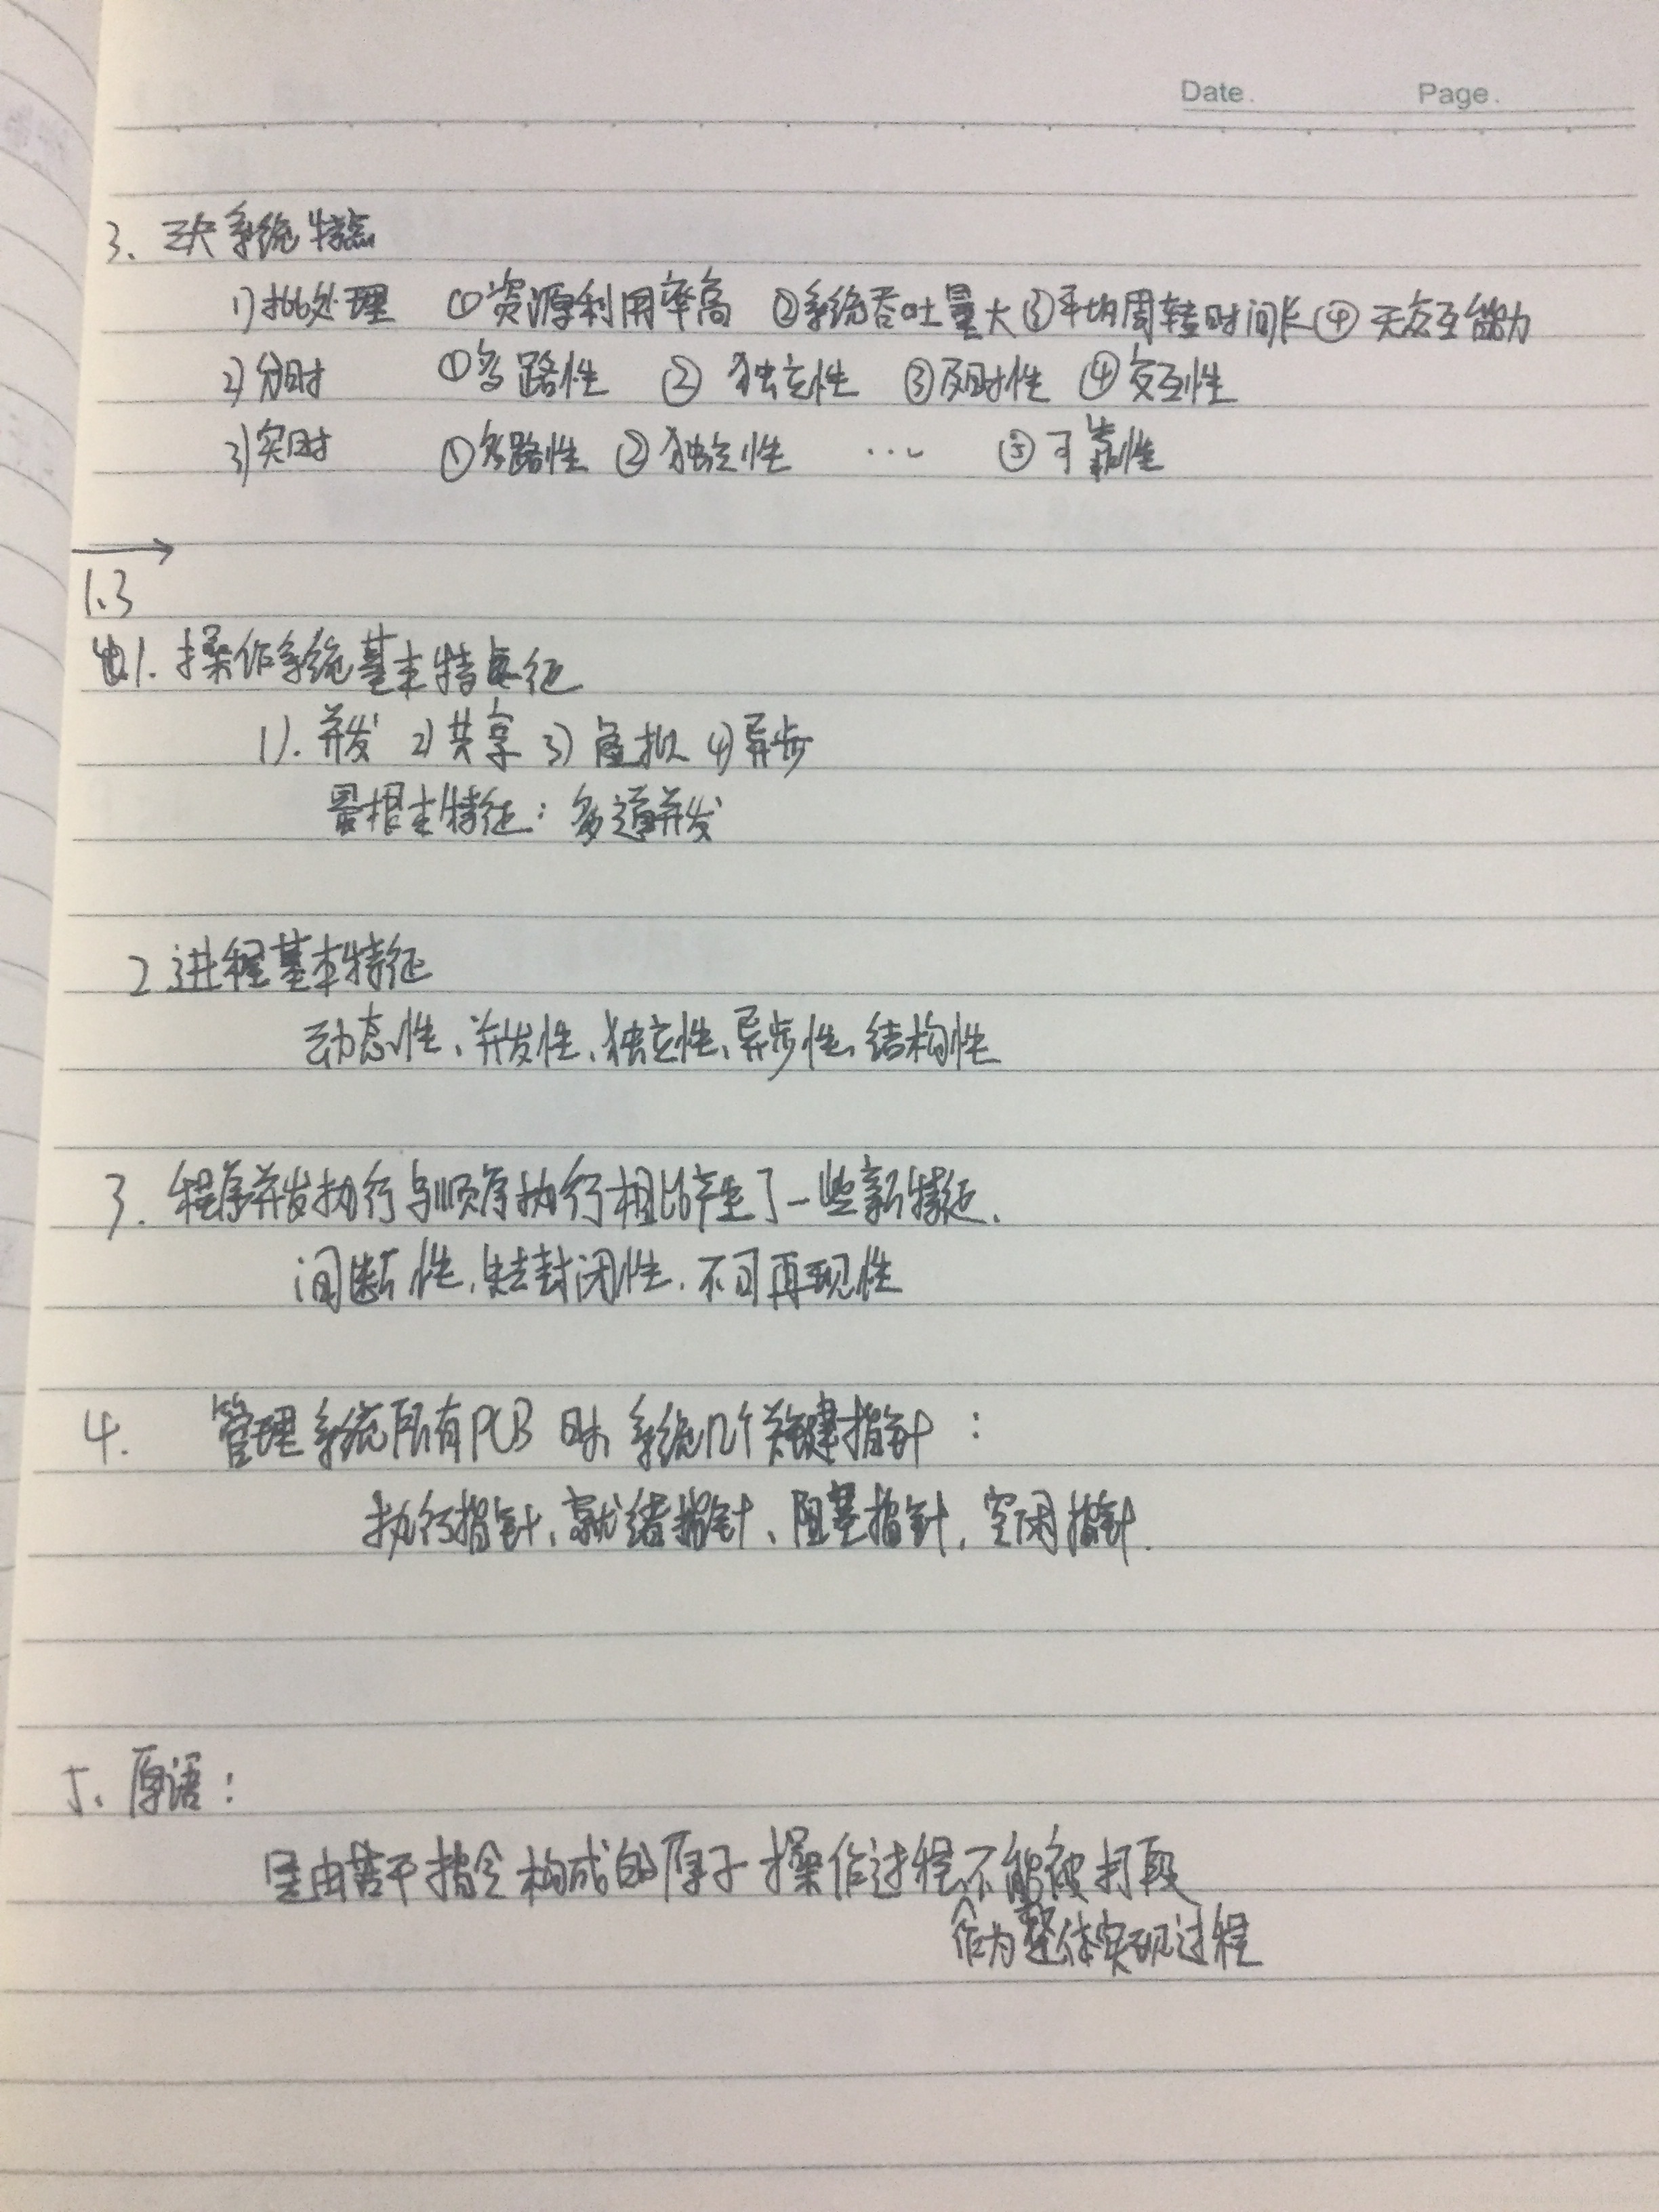 Date. Page.
3. 三大系统特点
1) 批处理 ①资源利用率高 ②系统吞吐量大 ③平均周转时间长 ④ 无交互能力
2) 分时 ①多路性 ② 独立性 ③及时性 ④交互性
3) 实时 ①多路性 ②独立性 ... ⑤可靠性
1.3
1. 操作系统基本特征
1). 并发 2) 共享 3) 虚拟 4) 异步
最根本特征: 多道并发
2 进程基本特征
动态性、并发性、独立性、异步性、结构性
3. 程序并发执行与顺序执行相比产生了一些新特征.
间断性, 失去封闭性, 不可再现性
4. 管理系统所有PCB时, 系统几个关键指针:
执行指针、就绪指针、阻塞指针, 空闲指针.
5、原语:
是由若干指令构成的原子操作过程不能被打段
作为整体实现过程